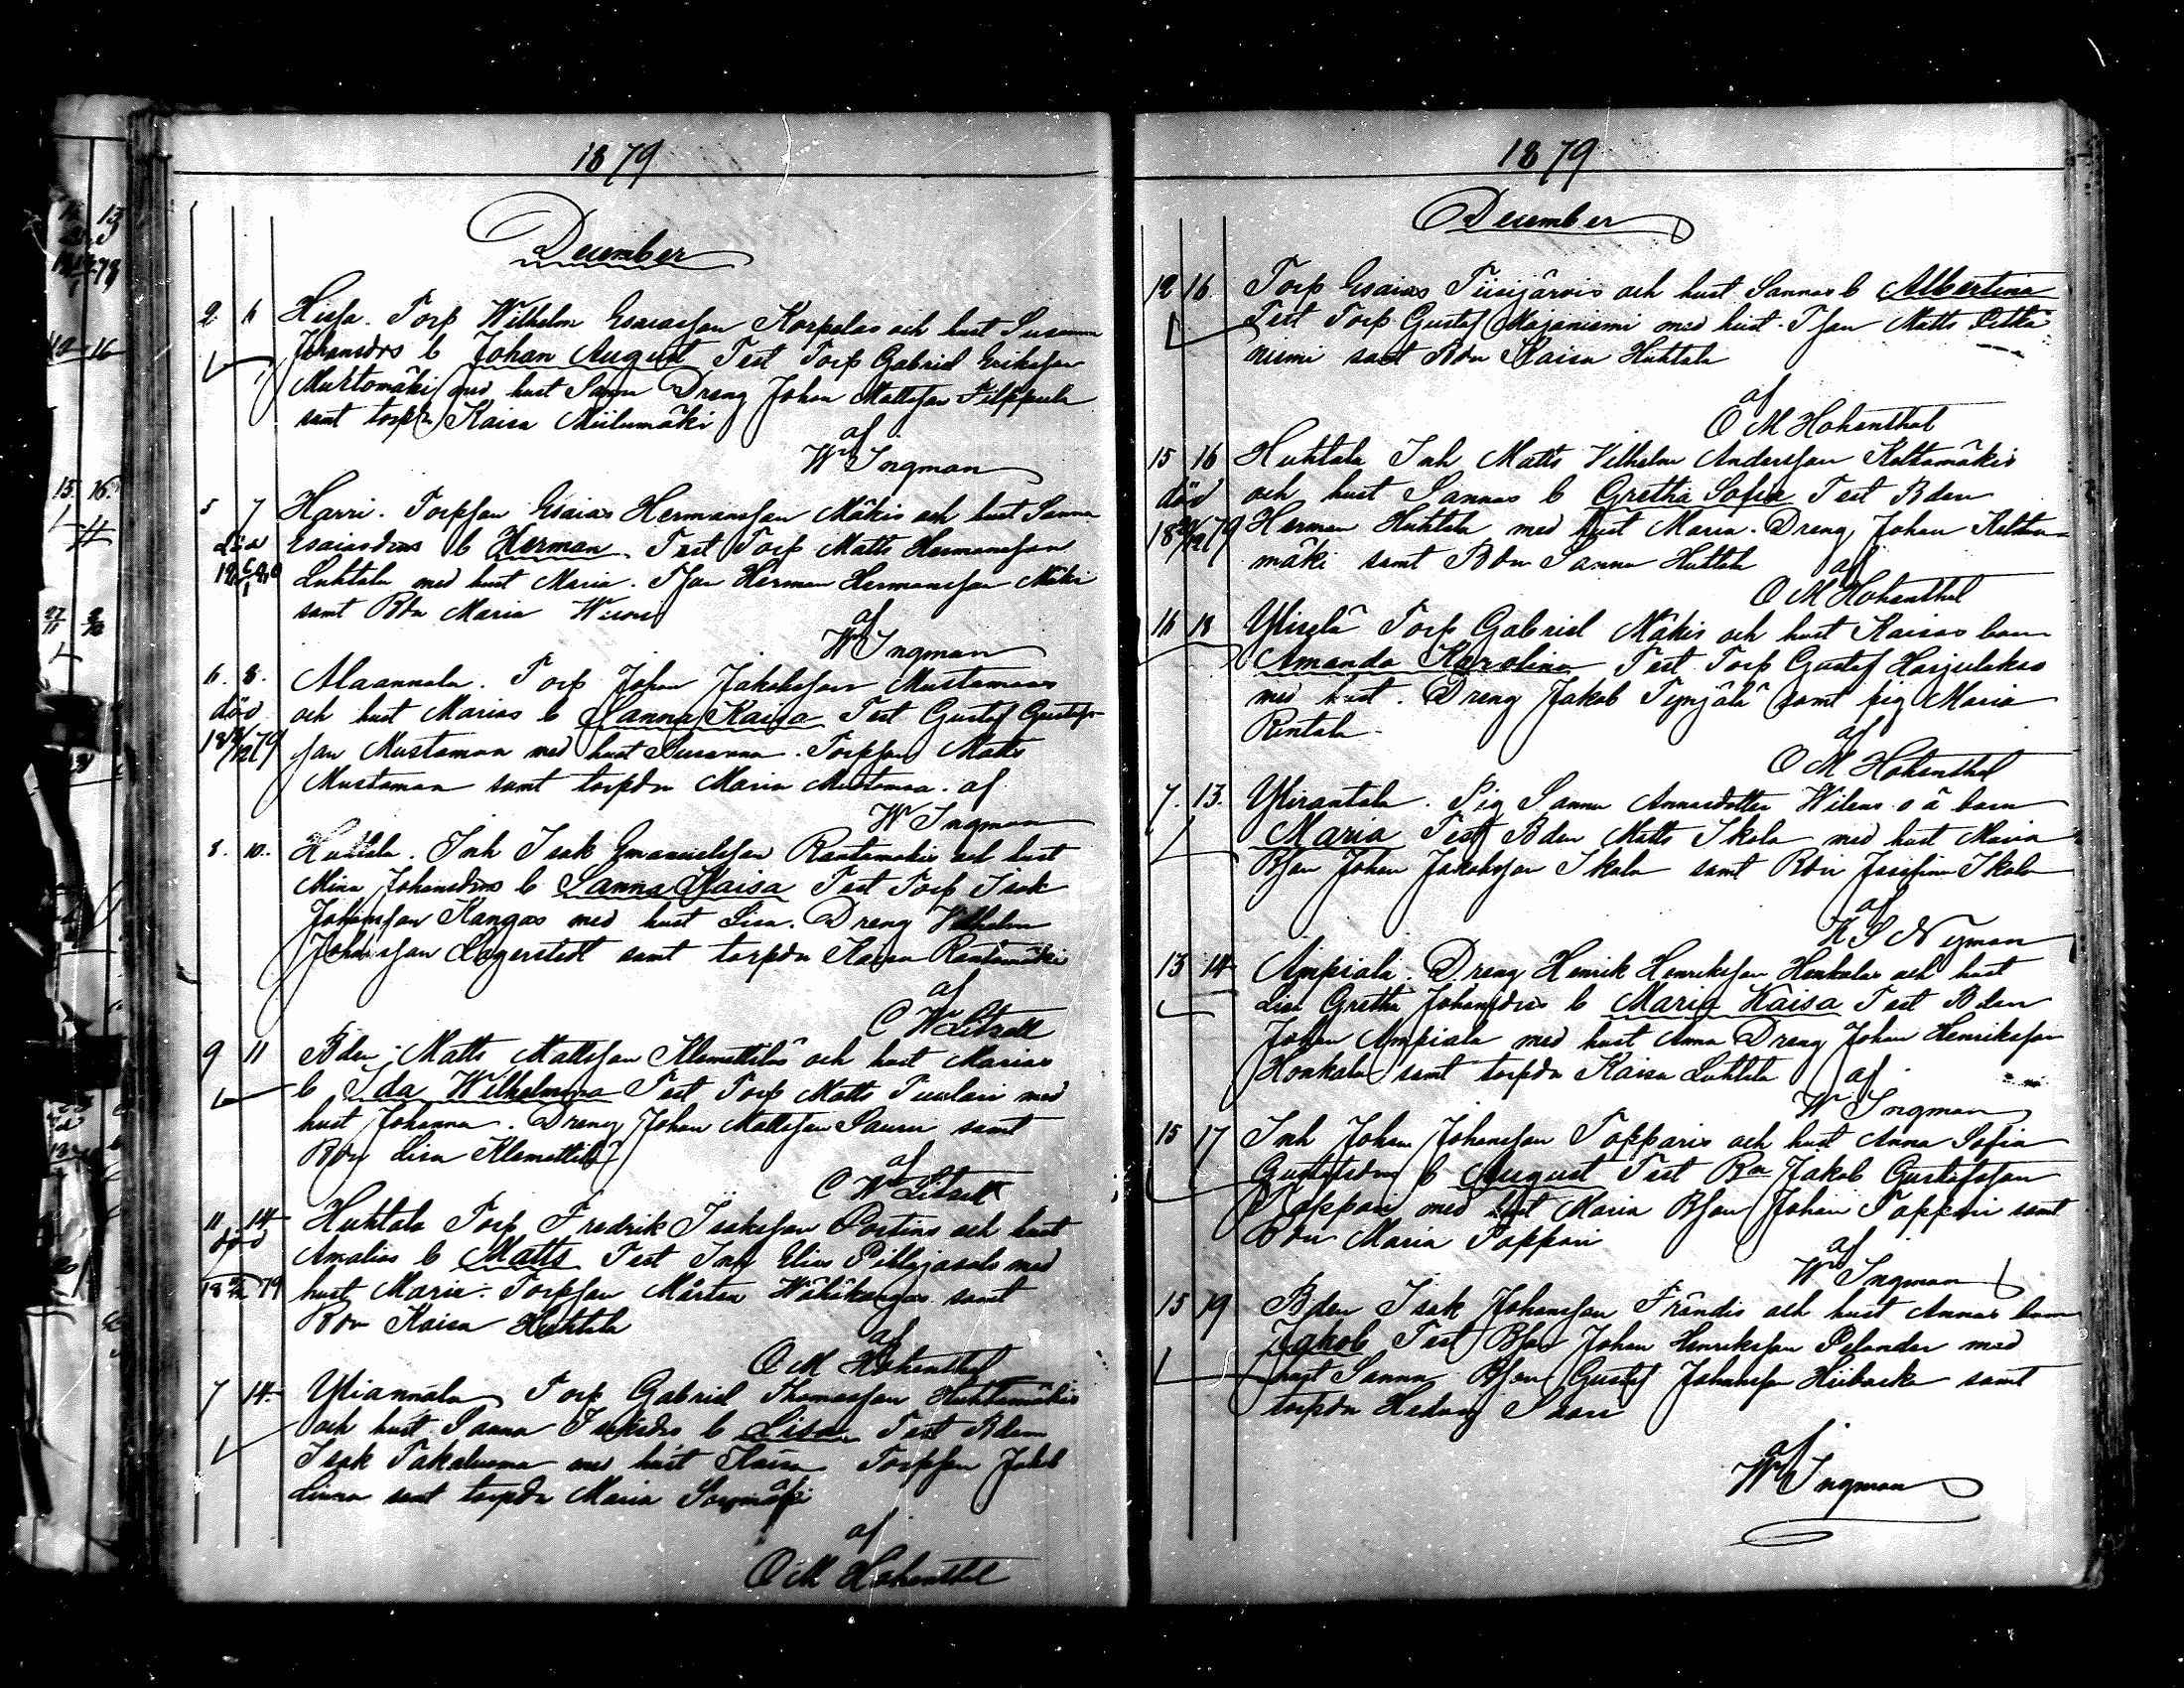 1879
December
2 6 Hissa. Torp Wilhelm Esaiasson Korpelas och hust Susanna
Johansdrs b Johan August Test Torp Gabriel Eriksson
Murtomäki med hust Sanna Dreng Johan Mattsson Filppula
samt torpdr Kaisa Miilumäki
af
W Ingman
5 7 Harri. Torpson Esaias Hermansson Mäkis och hust Sanna
död Esaiasdrs b Herman Test Torp Matts Hermansson
18 Luhtala med hust Maria. Tson Herman Hermansson Mäki
samt Bdr Maria
af
W Ingman
6. 8. Alaannala. Torp Johan Jakobsson Mustamaas
död och hust Marias b Sanna Kaisa Test Gustaf Gustafs-
18 79 son Mustamaa med hust Susanna. Torpson Matts
Mustamaa samt torpdr Maria Mustamaa. af
W Ingman
8. 10. Huhtala. Inh Isak Emanuelsson Rantamäkis och hust
Mina Johansdrs b Sanna Kaisa Test Torp Isak
Johansson Kangas med hust Lisa. Dreng Wilhelm
Johansson Lagerstedt samt torpdr Kaisa Rantamäki
af
C W Litzell
9 11 Bden Matts Mattsson Klemettiläs och hust Marias
b Ida Wilhelmina Test Torp Matts med
hust Johanna. Dreng Johan Mattsson Sauru samt
Bdr Lisa Klemettilä
af
C W Litzell
11 14 Huhtala Torp Fredrik Isaksson Portins och hust
död Amalias b Matts Test Inh Elias med
18 79 hust Maria. Torpson Mårten Wähäkangas samt
Bdr Kaisa Huhtala
af
O M Hohenthal
7 14. Yliannala Torp Gabriel Thomasson Huhtamäkis
och hust Sanna Isaksdrs b Lisa Test Bden
Isak Takaluoma med hust Kaisa Torpson Jakob
samt torpdr Maria
af
O M Hohenthal
1879
December
12 16 Torp Esaias Tiisijärvis och hust Sannas b Albertina
Test Torp Gustaf Majaniemi med hust. Tson Matts Pitkä
niemi samt Bdr Kaisa Huhtala
af
O M Hohenthal
15 16 Huhtala Inh Matts Vilhelm Andersson Keltamäkis
död och hust Sannas b Gretha Sofia Test Bden
18 79 Herman Huhtala med hust Maria. Dreng Johan Kelta-
mäki samt Bdr Sanna Huhtala af
O M Hohenthal
16 18 Torp Gabriel Mäkis och hust Kaisas barn
Amanda Karolina Test Torp Gustaf Harjulakso
med hust. Dreng Jakob Tynjälä samt pig Maria
Rintala.
af
O M Hohenthal
7. 13. Ylirantala. Pig Sanna Annasdotter Wilens o ä barn
Maria Test Bden Matts Ikola med hust Maria
Bson Johan Jakobsson Ikola samt Bdr Josefina Ikola
af
K S Nyman
13 14 Ampiala. Dreng Henrik Henriksson Honkalas och hust
Lisa Gretha Johansdrs b Maria Kaisa Test Bden
Johan Ampiala med hust Anna Dreng Johan Henriksson
Honkala samt torpdr Kaisa Luhtala
af
W Ingman
15 17 Inh Johan Johansson Topparis och hust Anna Sofia
Gustafsdrs b August Test Bn Jakob Gustafsson
Toppari med hust Maria Bson Johan Toppari samt
Bdr Maria Toppari
af
W Ingman
15 19 Bden Isak Johansson Fråndis och hust Annas barn
Jakob Test Bson Johan Henriksson Pelander med
hust Sanna Bson Gustaf Johansson samt
torpdr Hedvig Saari
af
W Ingman